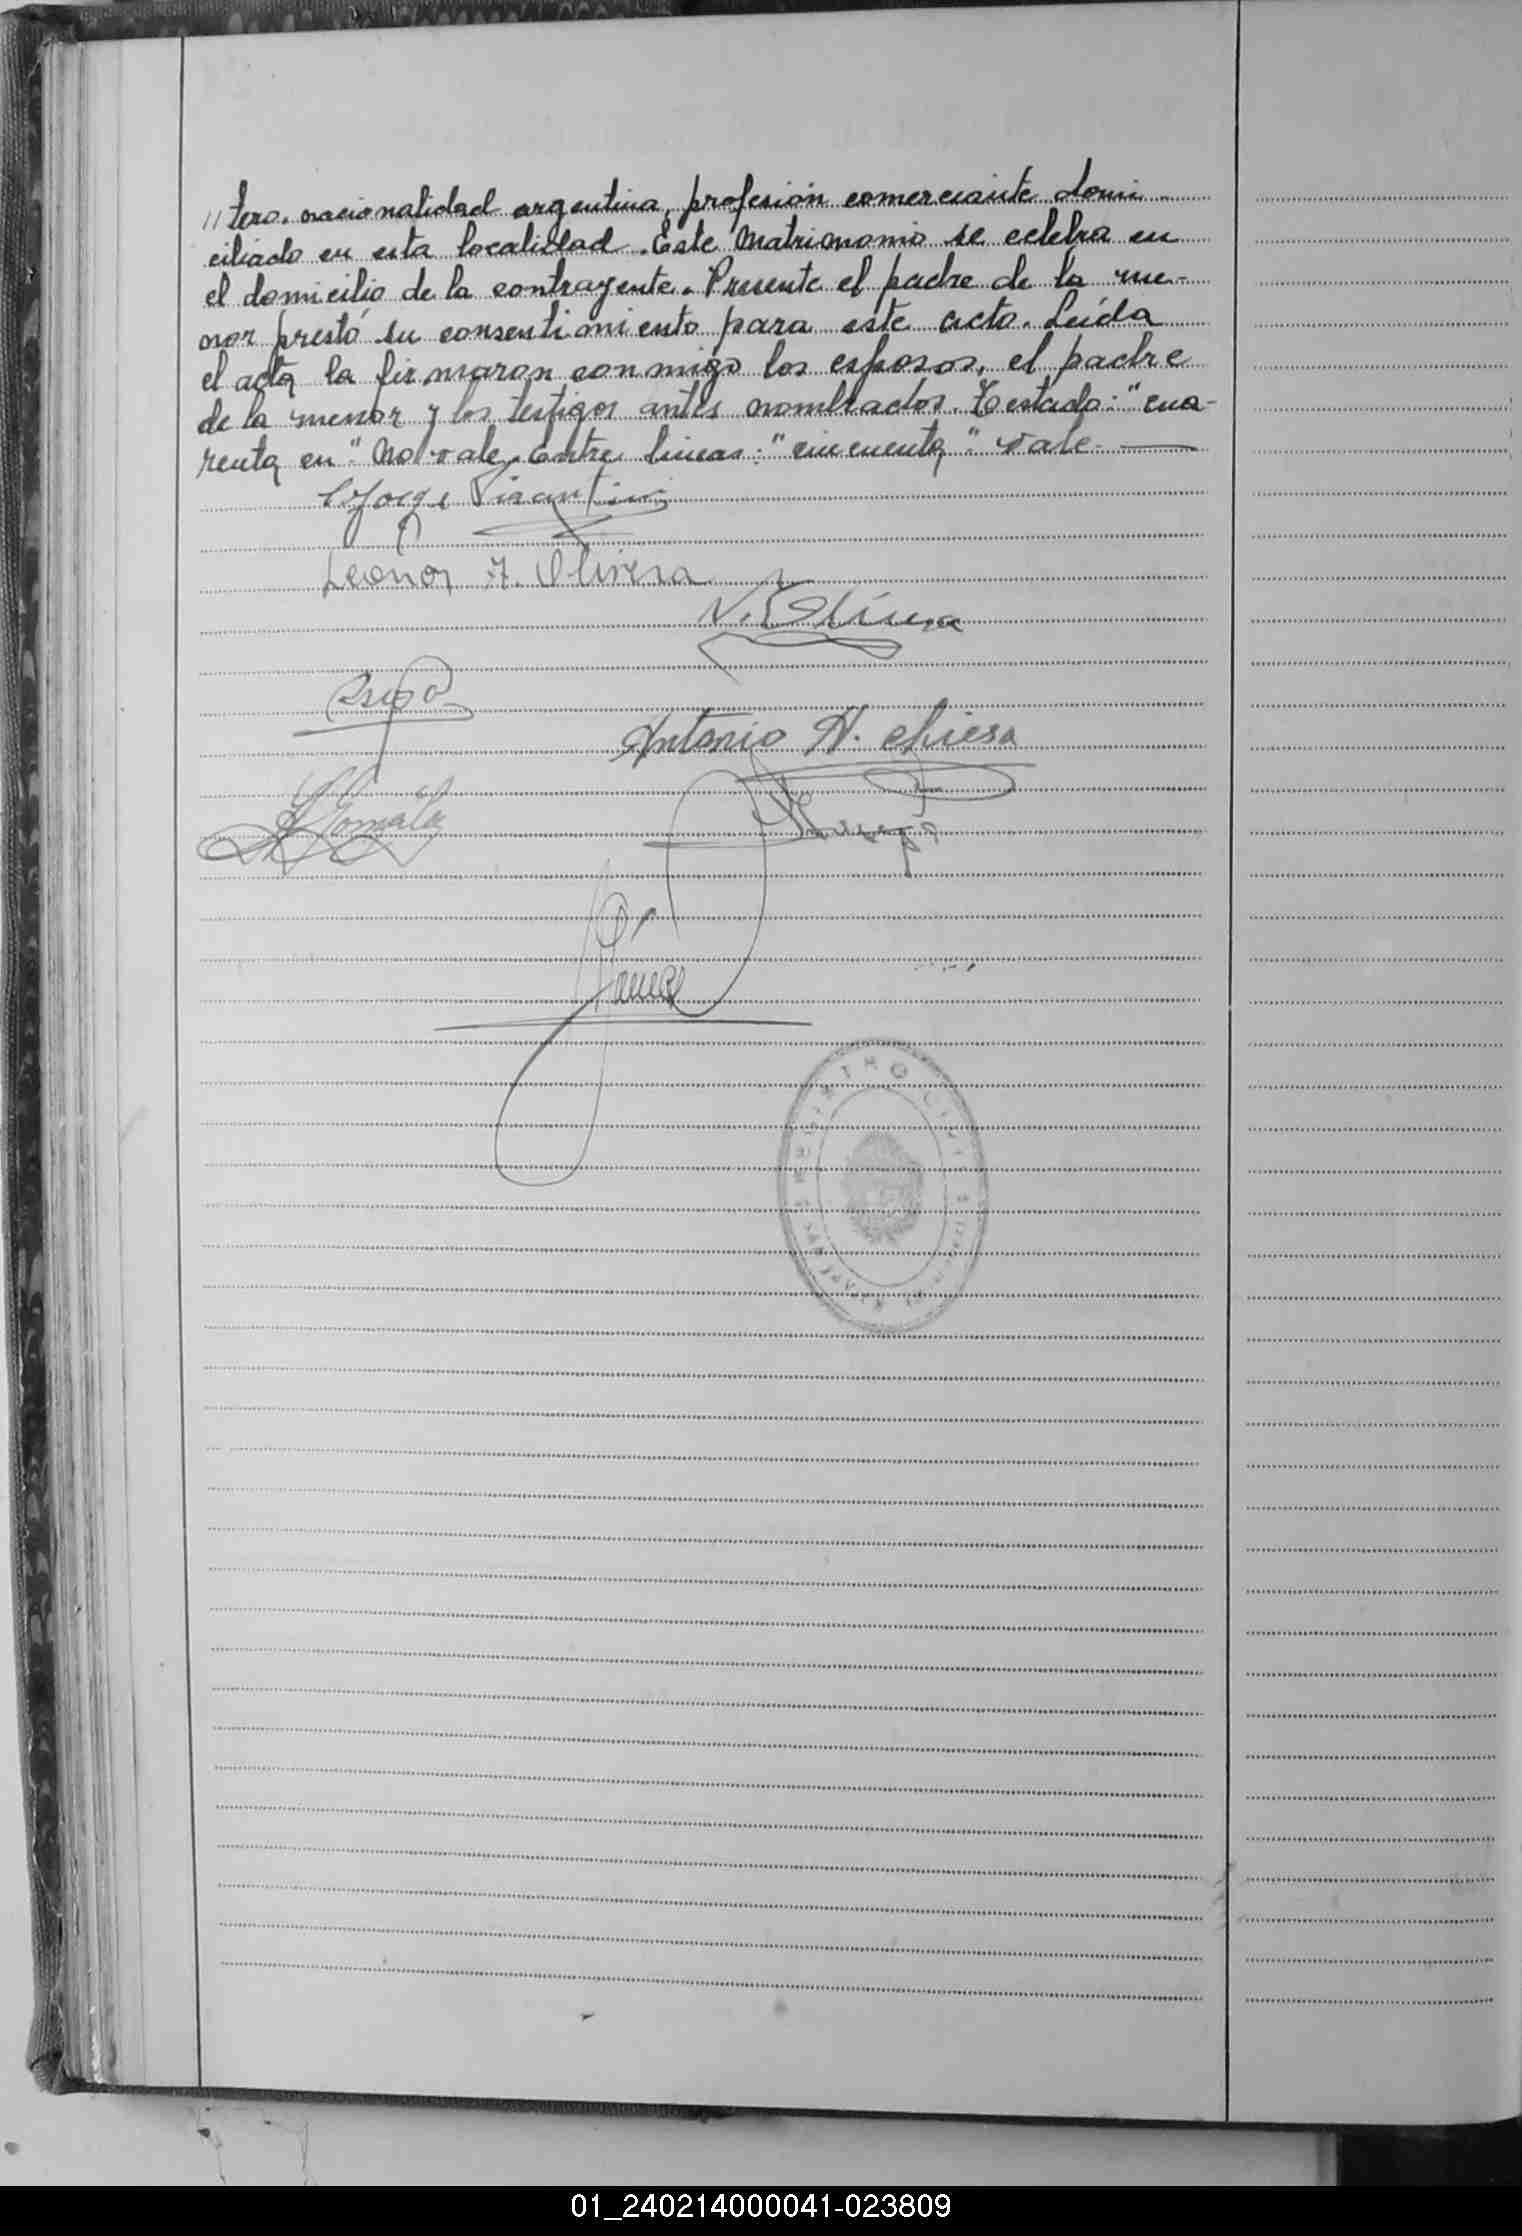 //tero. nacionalidad argentina, profesión comerciante domi-
ciliado en esta localidad. Este Matrimonio se celebra en
el domicilio de la contrayente. Presente el padre de la me-
nor prestó su consentimiento para este acto. Leída
el acta la firmaron conmigo los esposos, el padre
de la menor y los testigos antes nombrados. Testado: "cua-
renta en". No vale. Entre lineas: "cincuenta". Vale.
Jorge
Leonor F. Olivera
N. Olivera
Antonio N. Chiesa
REGISTRO CIVIL
01_240214000041-023809